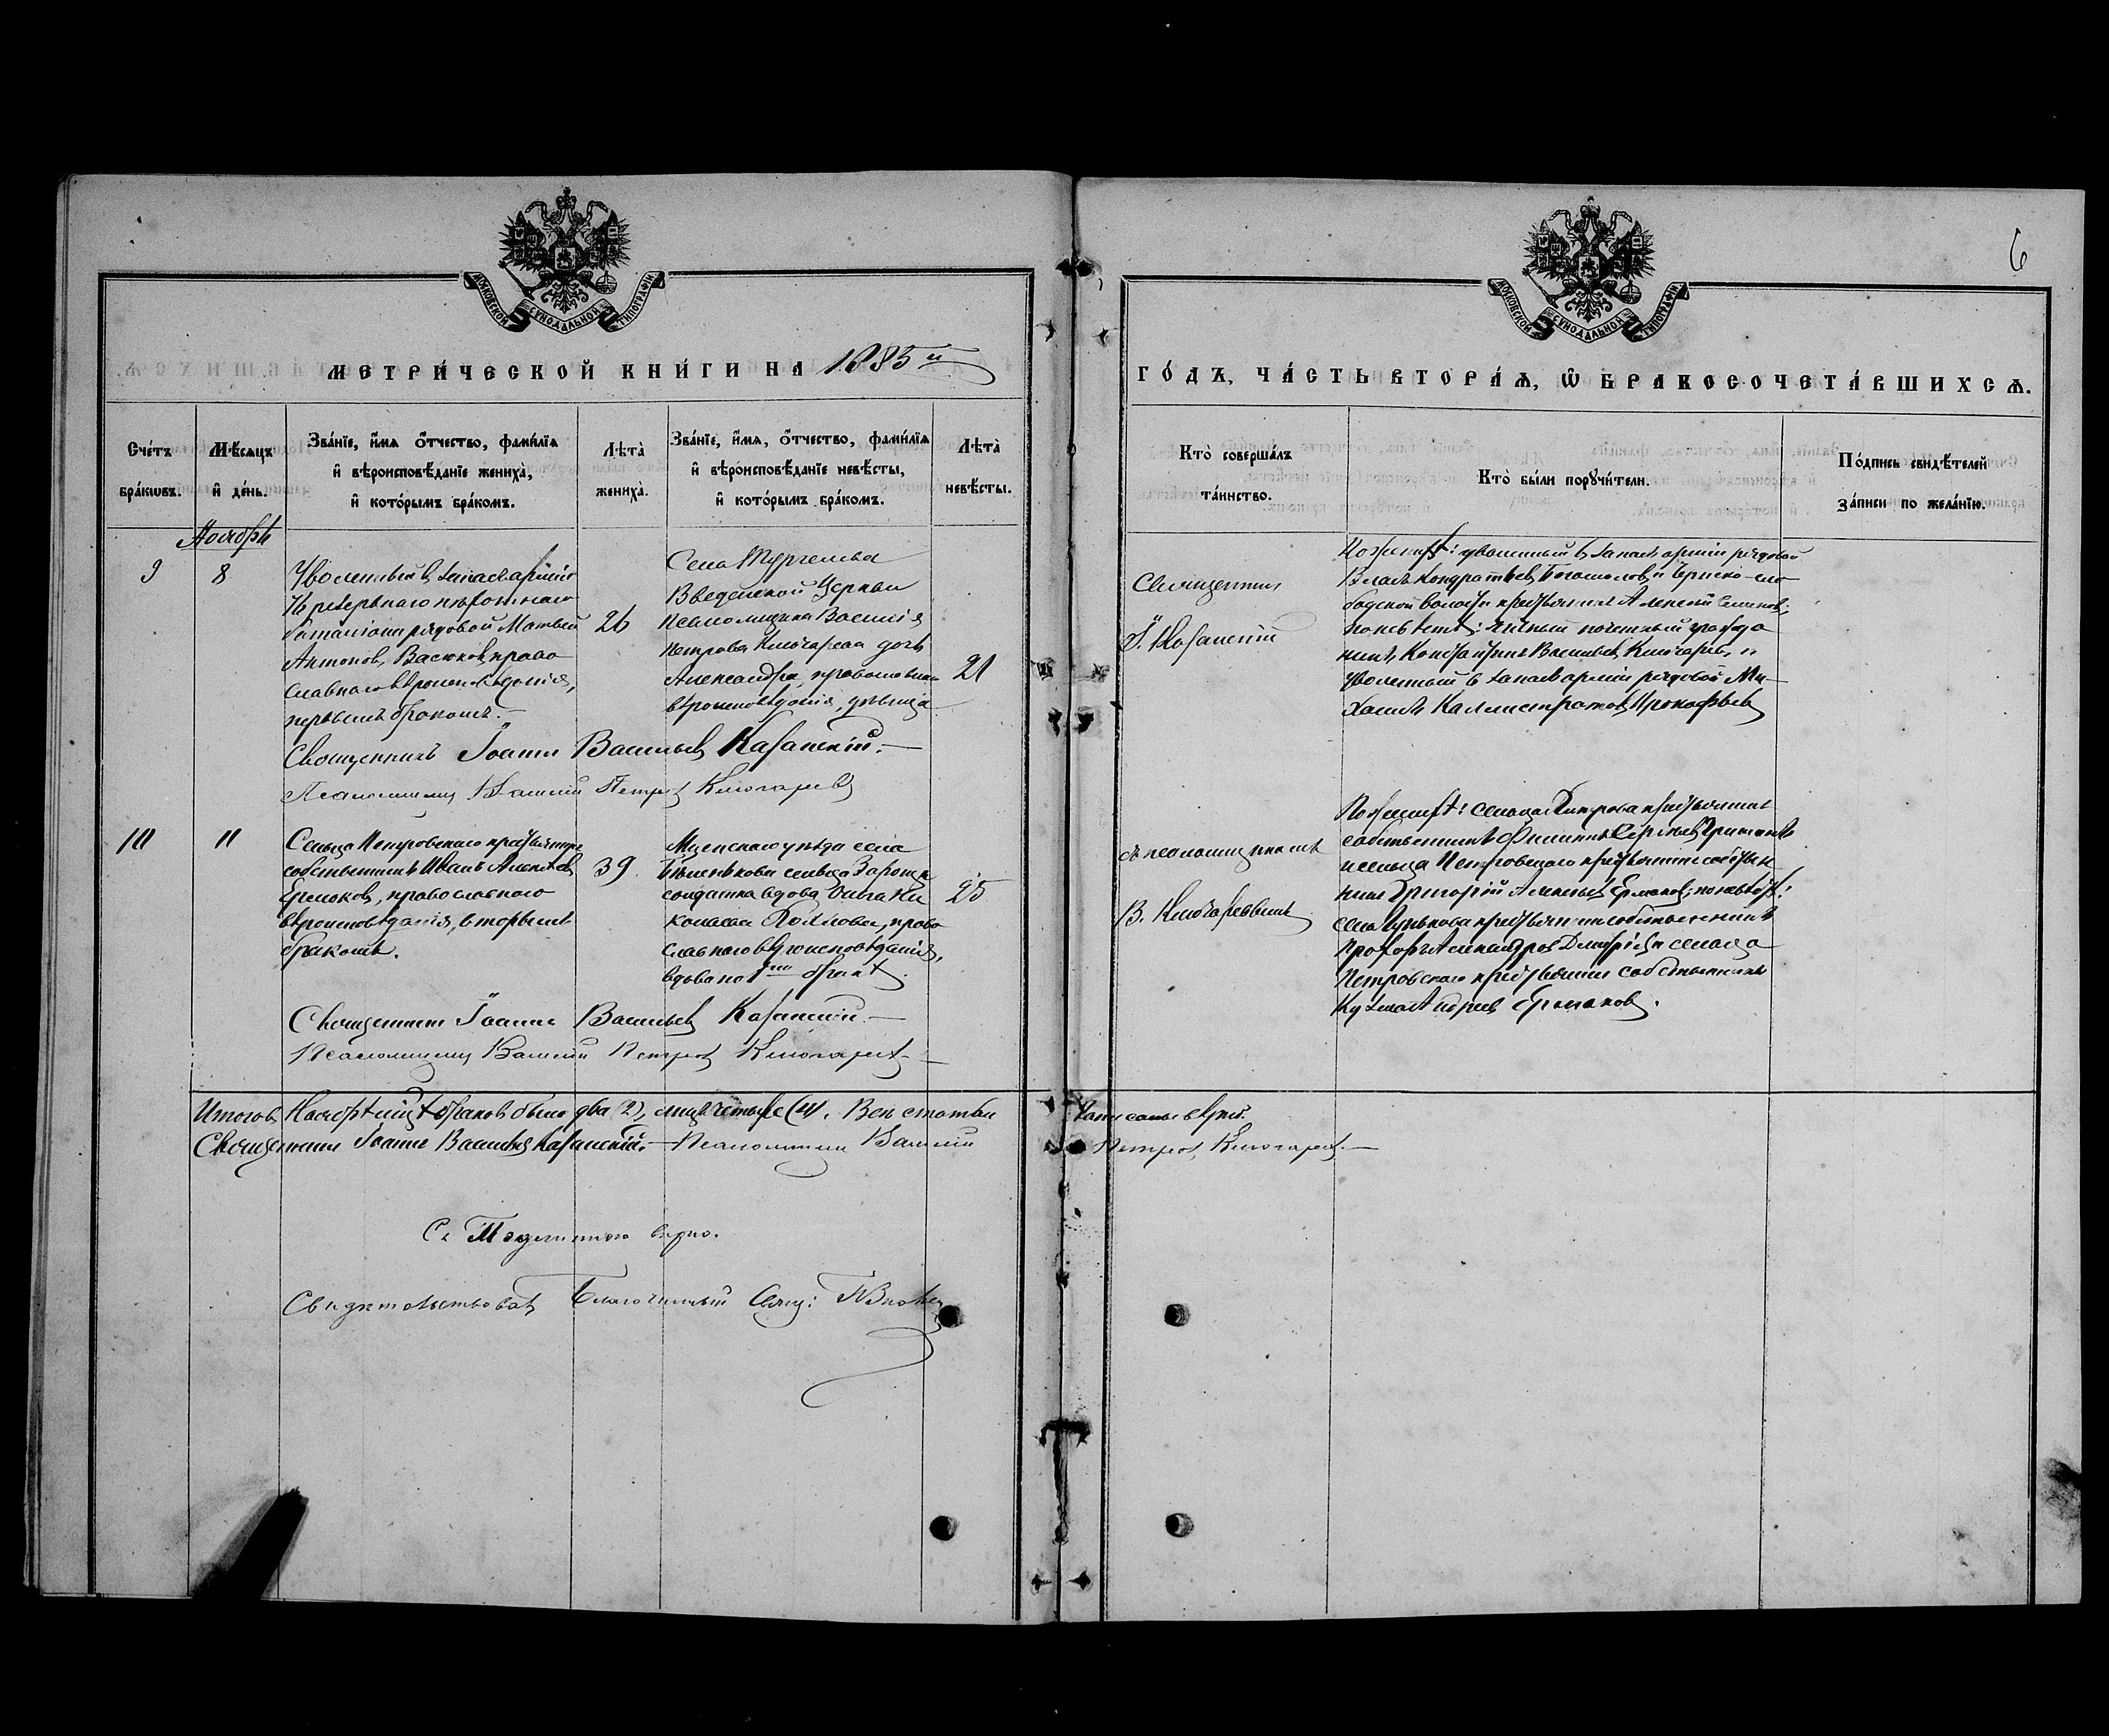 МОСКОВСКОЙ СѴНОДАЛЬНОЙ ТИПОГРАФІИ
МОСКОВСКОЙ СѴНОДАЛЬНОЙ ТИПОГРАФІИ
6
МЕТРИ́ЧЕСКОЙ КНИ́ГИ НА 1885й
ГО́ДЪ, ЧА́СТЬ ВТОРА́Ѧ, Ѽ БРАКОСОЧЕТА́ВШИХСѦ.
Сче́тъ бра́кѡвъ.
Мѣ́сѧцъ и҆ де́нь.
Зва́нїе, и҆́мѧ о҆́тчество, фами́лїѧ
и҆ вѣроисповѣ́данїе жениха̀,
и҆ кото́рымъ бра́комъ.
Лѣта̀ жениха̀.
Зва́нїе, и҆́мѧ, о҆́тчество, фами́лїѧ
и҆ вѣроисповѣ́данїе невѣ́сты,
и҆ кото́рымъ бра́комъ.
Лѣта̀ невѣ́сты.
Кто̀ соверша́лъ
та́инство.
Кто̀ бы́ли порꙋчи́тели.
По́дпись свидѣ́телей
за́писи по жела́нїю.
Ноябрь
9
8
Уволенный в запас арміи
резервнаго пѣхотнаго
баталіона рядовой Матвей
Антонов Васюков, право
славнаго вѣроисповѣданія,
первымъ бракомъ.
26
Села Тургенева
Введенской Церкви
псаломщика Василія
Петрова Ключарева дочь
Александра, православнаго
вѣроисповѣданія, дѣвица
21
Священник
І. Казанскій
По женихѣ: уволенный в запас арміи рядовой
Власъ Кондратьев Богомолов и
бодской волости крестьянинъ Алексей Семенов;
по невѣстѣ: личный почетный гражда
нинъ Константинъ Васильев Ключарев, и
уволенный в запас арміи рядовой Ми-
хаилъ Каллистратов Прокофьев
Священникъ Іоанн Васильев Казанскій.
Псаломщик Василій Петров Ключарев
10
11
Сельца Петровскаго крестьянинъ
собственникъ Иванъ Алексѣев
Ермаков, православнаго
вѣроисповѣданія, вторымъ
бракомъ.
39
Мценскаго уѣзда села
сельца Зарощи
солдатка вдова Ни
колаева право
славнаго вѣроисповѣданія,
вдова по 1мъ бракѣ.
25
съ псаломщикомъ
В. Ключаревымъ
По женихѣ: сельца крестьянинъ
собственникъ Филиппъ Сергѣев
и сельца Петровскаго крестьянин собствен
ник Григорій Алексѣев Ермаков; по невѣстѣ:
села крестьянин собственникъ
Прохоръ Александров и сельца
Петровскаго крестьянин собственникъ
Кузьма Андреев Ермаков.
Священник Іоанн Васильев Казанскій.
Псаломщик Василій Петров Ключарев
Итого в Ноябрѣ мцѣ браков было два (2), лицъ четыре (4). Всѣ статьи записаны вѣрно.
Священник Іоанн Васильев Казанскій. Псаломщик Василій Петров Ключарев.
Съ Подлиннымъ вѣрно.
Свидѣтельствовалъ Благочинный Свящ: